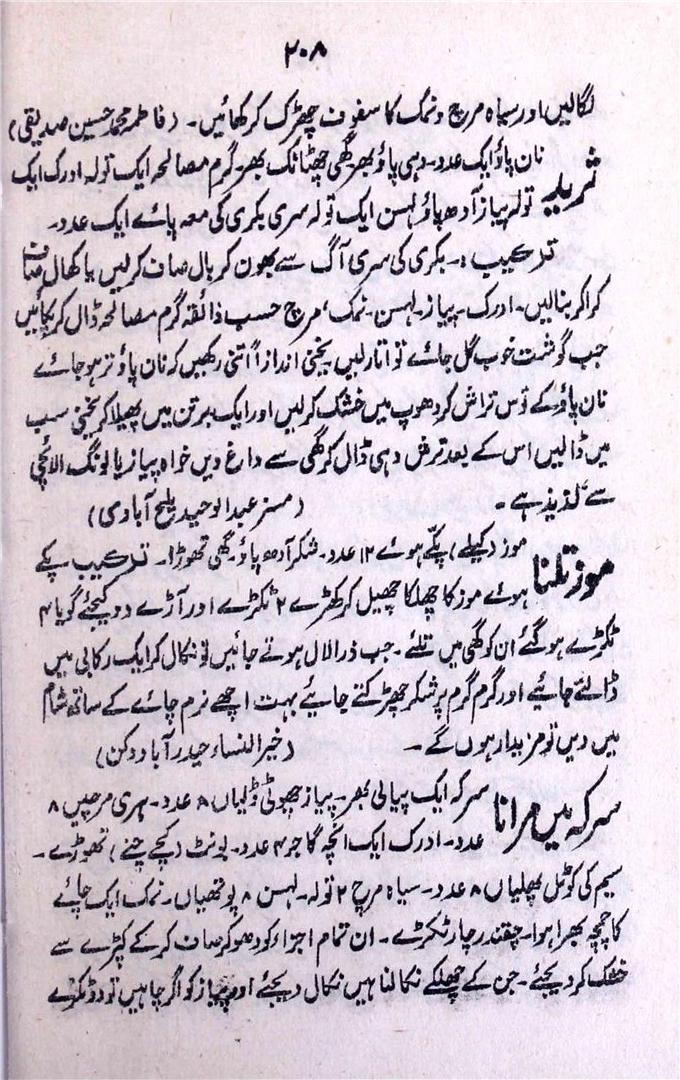 ۲۰۸
لگالیں اور سیاہ مرچ و نمک کا سفوف چھڑک کر کھائیں۔ (فاطمہ محمد حسین صدیقی)
ثرید نان پاؤ ایک عدد۔ دہی پاؤ بھر گھی چھٹانک بھر گرم مصالحہ ایک تولہ ادرک ایک
تولہ پیاز آدھ پاؤ لہسن ایک تولہ سری بکری کی معہ پائے ایک عدد۔
ترکیب :۔ بکری کی سری آگ سے بھون کر بال صاف کرلیں یا کھال صاف
کراکر بنالیں۔ ادرک۔ پیاز۔ لہسن۔ نمک، مرچ حسب ذائقہ گرم مصالحہ ڈال کر پکائیں
جب گوشت خوب گل جائے تو اتار لیں یخنی اندازاً اتنی رکھیں کہ نان پاؤ تر ہوجائے
نان پاؤ کے توس تراش کر دھوپ میں خشک کرلیں اور ایک برتن میں پھیلا کر یخنی سب
میں ڈالیں اس کے بعد ترش دہی ڈال کر گھی سے داغ دیں خواہ پیاز یا لونگ الائچی
سے لذیذ ہے۔ (مسز عبدالوحید ملیح آبادی)
موز تلنا موز (کیلے) پکے ہوئے ۱۲ عدد۔ شکر آدھ پاؤ۔ گھی تھوڑا۔ ترکیب پکے
ہوئے موز کا چھلکا چھیل کر کھڑے ۲ ٹکڑے اور آڑے دو کیجئے گویا ۴
ٹکڑے ہوگئے ان کو گھی میں تلئے۔ جب ذرا لال ہوتے جائیں تو نکال کر ایک رکابی میں
ڈالتے جائیے اور گرم گرم پر شکر چھڑکتے جائیے بہت اچھے نرم چائے کے ساتھ شام
میں دیں تو مزیدار ہوں گے۔ (خیرالنساء حیدرآباد دکن)
سرکہ میں مرانا سرکہ ایک پیالی بھر۔ پیاز چھوٹی ڈلیاں ۸ عدد۔ ہری مرچیں ۸
عدد۔ ادرک ایک انچہ گاجر ۴ عدد۔ بونٹ (کچے چنے) تھوڑے۔
سیم کی کونپل پھلیاں ۸ عدد۔ سیاہ مرچ ۲ تولہ۔ لہسن ۸ پوتھیاں۔ نمک ایک چائے
کا چمچہ بھرا ہوا۔ چقندر چار ٹکڑے۔ ان تمام اجزاء کو دھوکر صاف کرکے کپڑے سے
خشک کردیجئے۔ جن کے چھلکے نکالنا ہیں نکال دیجئے اور پیاز کو اگر چاہیں تو دو ٹکڑے